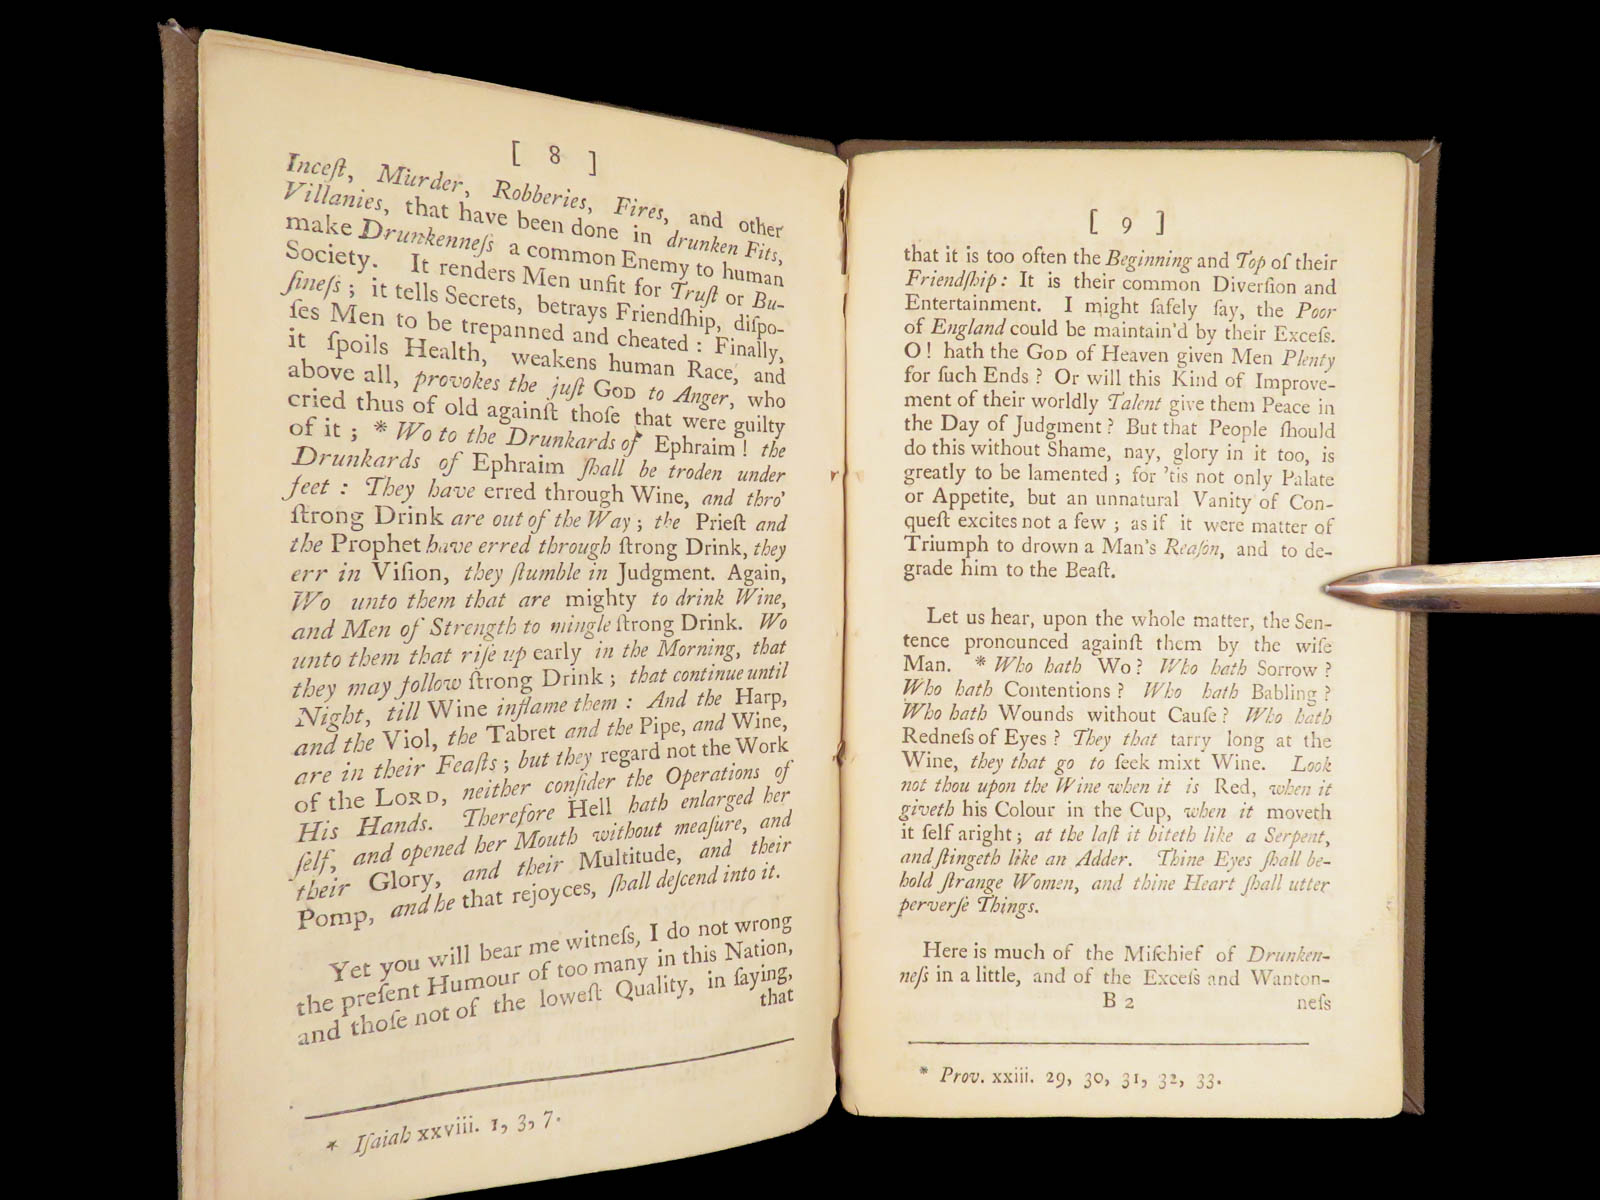 [ 8 ]
Inceſt, Murder, Robberies, Fires, and other
Villanies, that have been done in drunken Fits,
make Drunkenneſs a common Enemy to human
Society. It renders Men unfit for Truſt or Bu-
ſineſs; it tells Secrets, betrays Friendſhip, diſpo-
ſes Men to be trepanned and cheated: Finally,
it ſpoils Health, weakens human Race, and
above all, provokes the juſt GOD to Anger, who
cried thus of old againſt thoſe that were guilty
of it; * Wo to the Drunkards of Ephraim! the
Drunkards of Ephraim ſhall be troden under
feet: They have erred through Wine, and thro'
ſtrong Drink are out of the Way; the Prieſt and
the Prophet have erred through ſtrong Drink, they
err in Viſion, they ſtumble in Judgment. Again,
Wo unto them that are mighty to drink Wine,
and Men of Strength to mingle ſtrong Drink. Wo
unto them that riſe up early in the Morning, that
they may follow ſtrong Drink; that continue until
Night, till Wine inflame them: And the Harp,
and the Viol, the Tabret and the Pipe, and Wine,
are in their Feaſts; but they regard not the Work
of the LORD, neither conſider the Operations of
His Hands. Therefore Hell hath enlarged her
ſelf, and opened her Mouth without meaſure, and
their Glory, and their Multitude, and their
Pomp, and he that rejoyces, ſhall deſcend into it.
Yet you will bear me witneſs, I do not wrong
the preſent Humour of too many in this Nation,
and thoſe not of the loweſt Quality, in ſaying,
that
* Iſaiah xxviii. 1, 3, 7.
[ 9 ]
that it is too often the Beginning and Top of their
Friendſhip: It is their common Diverſion and
Entertainment. I might ſafely ſay, the Poor
of England could be maintain'd by their Exceſs.
O! hath the GOD of Heaven given Men Plenty
for ſuch Ends? Or will this Kind of Improve-
ment of their worldly Talent give them Peace in
the Day of Judgment? But that People ſhould
do this without Shame, nay, glory in it too, is
greatly to be lamented; for 'tis not only Palate
or Appetite, but an unnatural Vanity of Con-
queſt excites not a few; as if it were matter of
Triumph to drown a Man's Reaſon, and to de-
grade him to the Beaſt.
Let us hear, upon the whole matter, the Sen-
tence pronounced againſt them by the wiſe
Man. * Who hath Wo? Who hath Sorrow?
Who hath Contentions? Who hath Babling?
Who hath Wounds without Cauſe? Who hath
Redneſs of Eyes? They that tarry long at the
Wine, they that go to ſeek mixt Wine. Look
not thou upon the Wine when it is Red, when it
giveth his Colour in the Cup, when it moveth
it ſelf aright; at the laſt it biteth like a Serpent,
and ſtingeth like an Adder. Thine Eyes ſhall be-
hold ſtrange Women, and thine Heart ſhall utter
perverſe Things.
Here is much of the Miſchief of Drunken-
neſs in a little, and of the Exceſs and Wanton-
B 2 neſs
* Prov. xxiii. 29, 30, 31, 32, 33.